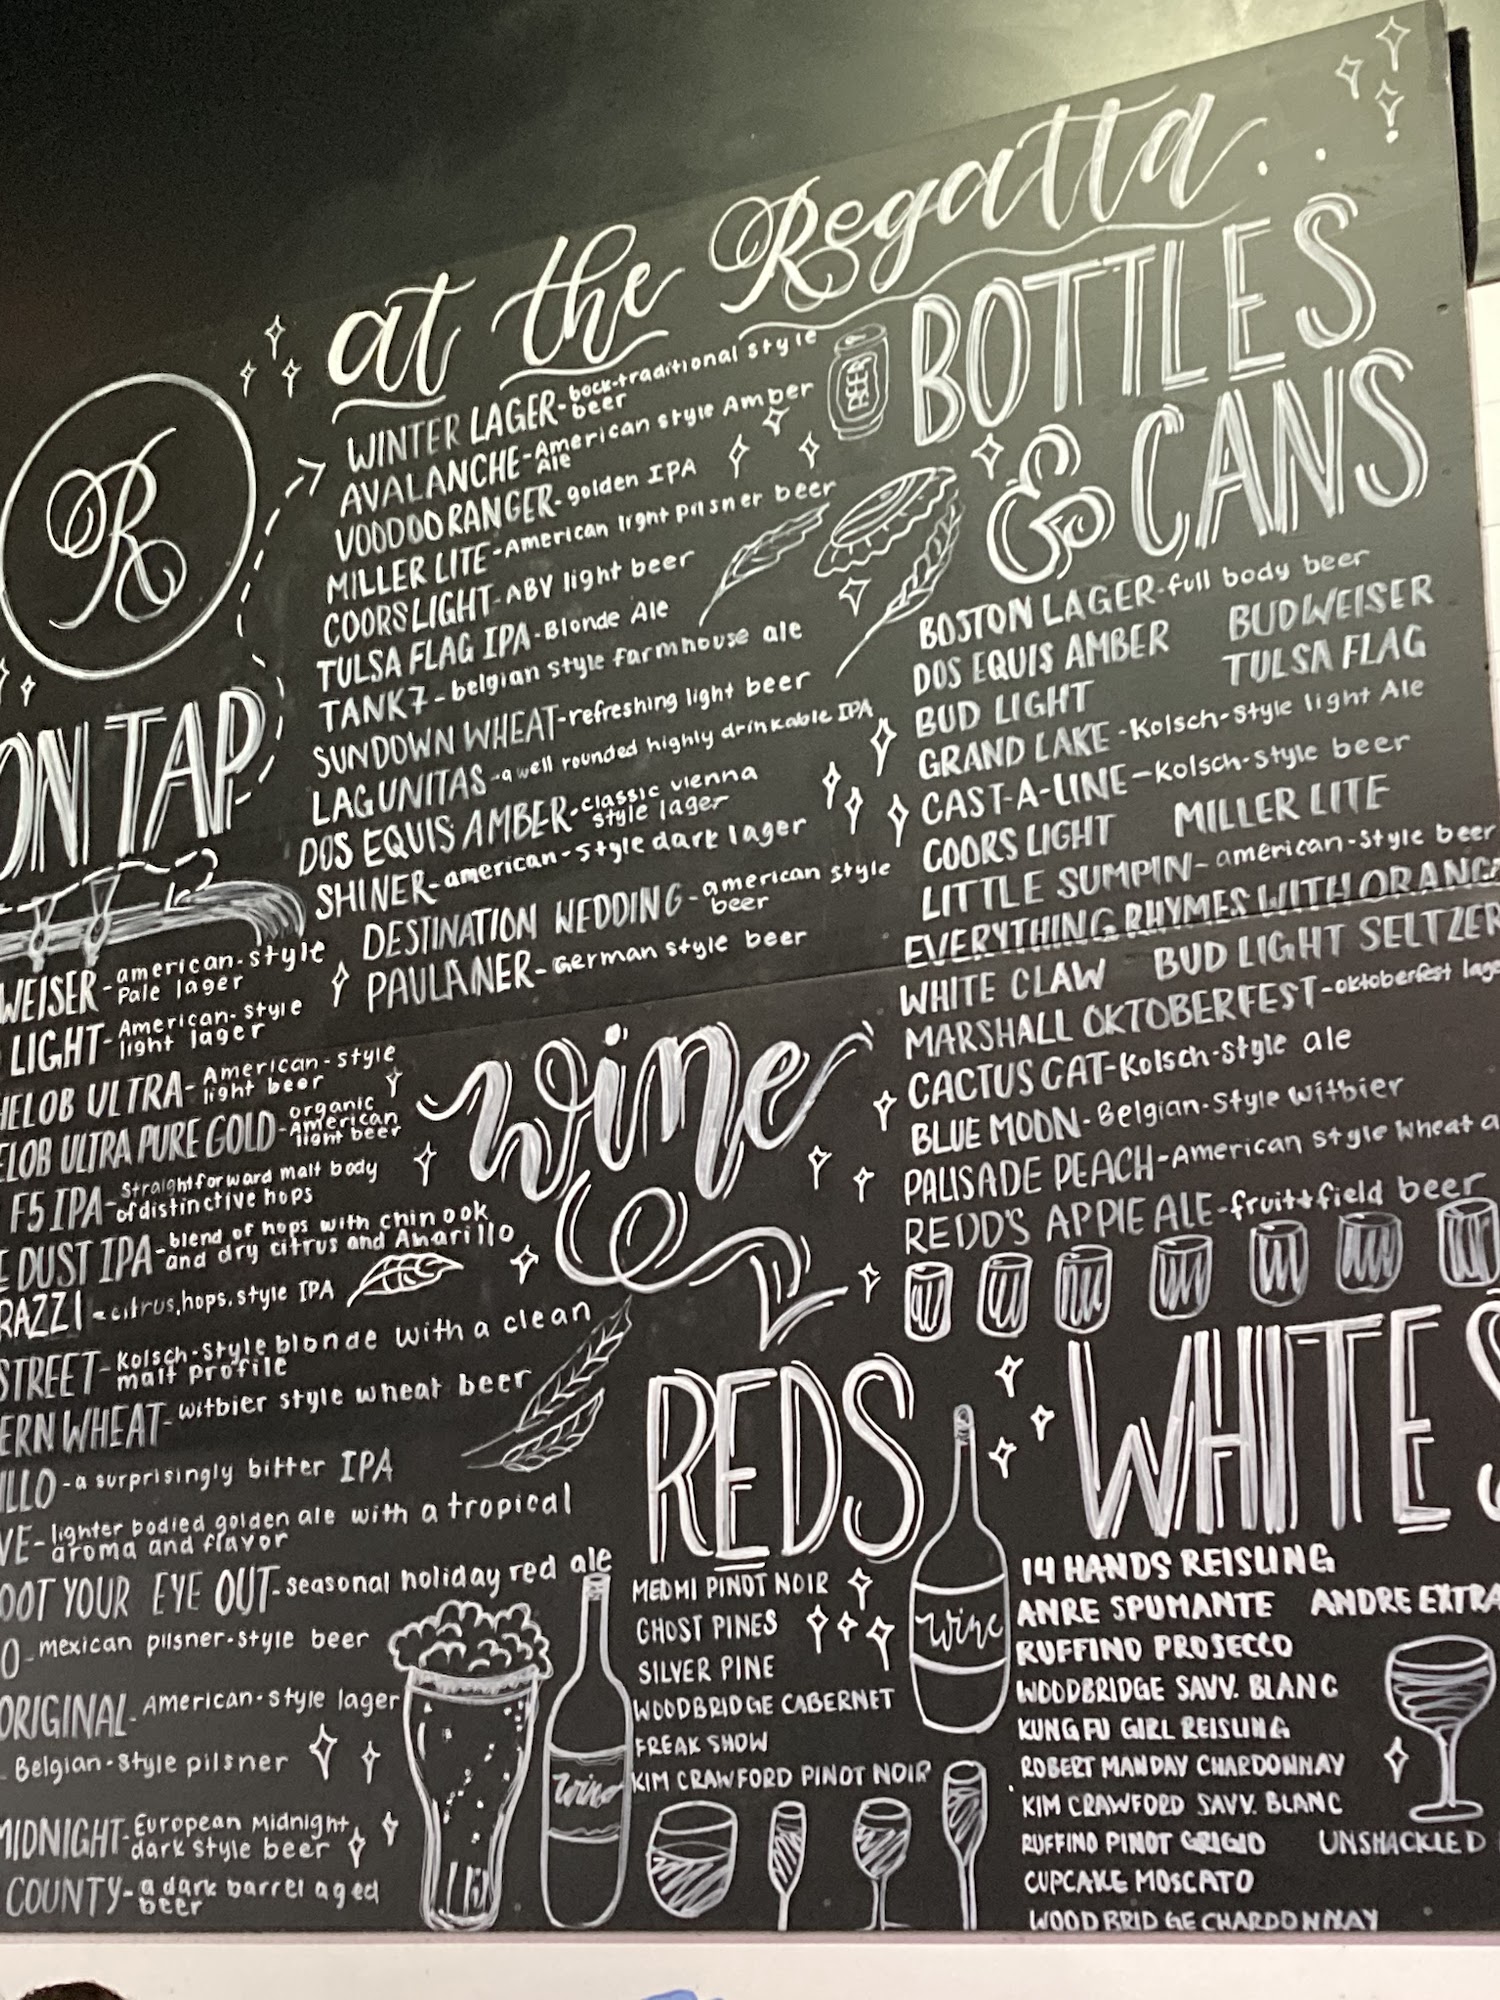 at the Regatta...
R
ON TAP
WINTER LAGER-bock-traditional style
beer
AVALANCHE-American style Amber
Ale
VOODOO RANGER-golden IPA
MILLER LITE-American light pilsner beer
COORS LIGHT-ABV light beer
TULSA FLAG IPA-Blonde Ale
TANK7-belgian style farmhouse ale
SUNDOWN WHEAT-refreshing light beer
LAGUNITAS-a well rounded highly drinkable IPA
DOS EQUIS AMBER-classic vienna
style lager
SHINER-american-style dark lager
DESTINATION WEDDING-american style
beer
PAULANER-German style beer
WEISER-american-style
Pale lager
LIGHT-American-style
light lager
HELOB ULTRA-American-style
light beer
ELOB ULTRA PURE GOLD-organic
American
light beer
F5 IPA-Straightforward malt body
of distinctive hops
DUST IPA-blend of hops with chinook
and dry citrus and Amarillo
RAZZI-citrus,hops,style IPA
STREET-Kolsch-style blonde with a clean
malt profile
ERN WHEAT-witbier style wheat beer
ILLO-a surprisingly bitter IPA
VE-lighter bodied golden ale with a tropical
aroma and flavor
OOT YOUR EYE OUT-seasonal holiday red ale
O-mexican pilsner-style beer
ORIGINAL-American-style lager
Belgian-style pilsner
MIDNIGHT-European Midnight
dark style beer
COUNTY-a dark barrel aged
beer
BEER
BOTTLES
& CANS
BOSTON LAGER-full body beer
DOS EQUIS AMBER BUDWEISER
BUD LIGHT TULSA FLAG
GRAND LAKE-Kolsch-style light Ale
CAST-A-LINE-Kolsch-style beer
COORS LIGHT MILLER LITE
LITTLE SUMPIN-american-style beer
EVERYTHING RHYMES WITH ORANG
WHITE CLAW BUD LIGHT SELTZER
MARSHALL OKTOBERFEST-oktoberfest lage
CACTUS CAT-Kolsch-style ale
BLUE MOON-Belgian-Style witbier
PALISADE PEACH-American style wheat a
REDD'S APPIE ALE-fruit+field beer
wine
REDS
MEOMI PINOT NOIR
GHOST PINES
SILVER PINE
WOODBRIDGE CABERNET
FREAK SHOW
KIM CRAWFORD PINOT NOIR
wine
wine
WHITES
14 HANDS REISLING
ANRE SPUMANTE ANDRE EXTRA
RUFFINO PROSECCO
WOODBRIDGE SAVV. BLANC
KUNG FU GIRL REISLING
ROBERT MANDAY CHARDONNAY
KIM CRAWFORD SAVV. BLANC
RUFFINO PINOT GRIGIO UNSHACKLED
CUPCAKE MOSCATO
WOODBRIDGE CHARDONNAY